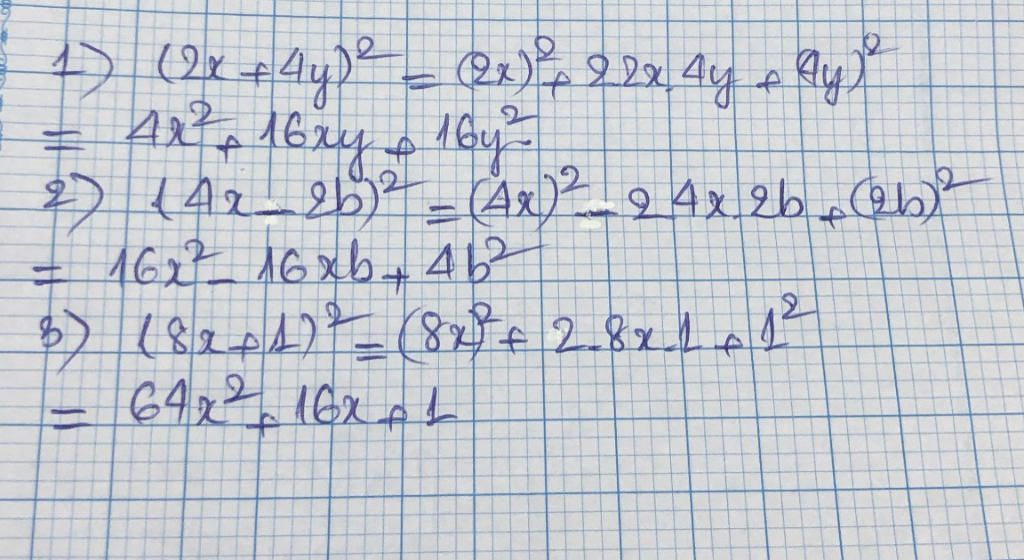 1) (2x + 4y)² = (2x)² + 2 2x. 4y + (4y)²
= 4x² + 16xy + 16y²
2) (4x - 2b)² = (4x)² - 2 4x 2b + (2b)²
= 16x² - 16xb + 4b²
3) (8x + 1)² = (8x)² + 2.8x.1 + 1²
= 64x² + 16x + 1